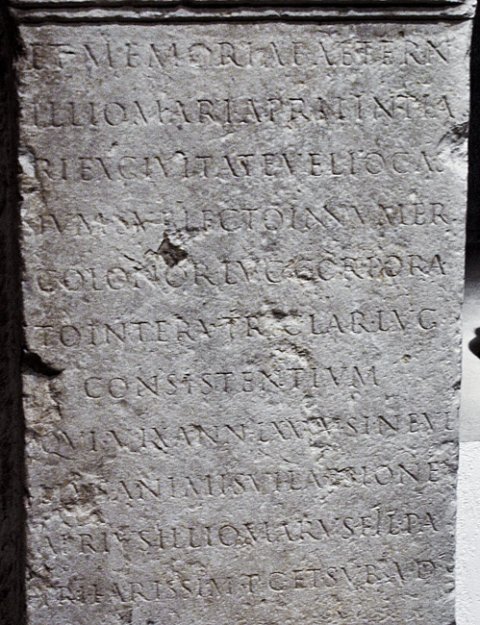 ET MEMORIAE AETERN
ILLIOMARI APRI LINTIA
RI EX CIVITATE VELIOCAS
SIVM SVBLECTO IN NVMER
COLONOR LVG CORPORA
TO INTER VTRICLAR LVG
CONSISTENTIVM
QVI VIX ANN LXXXV SINE VL
LIVS ANIMI SVI LAESIONE
APRIVS ILLIOMARVS FIL PA
TRI KARISSIM P C ET SVB A D